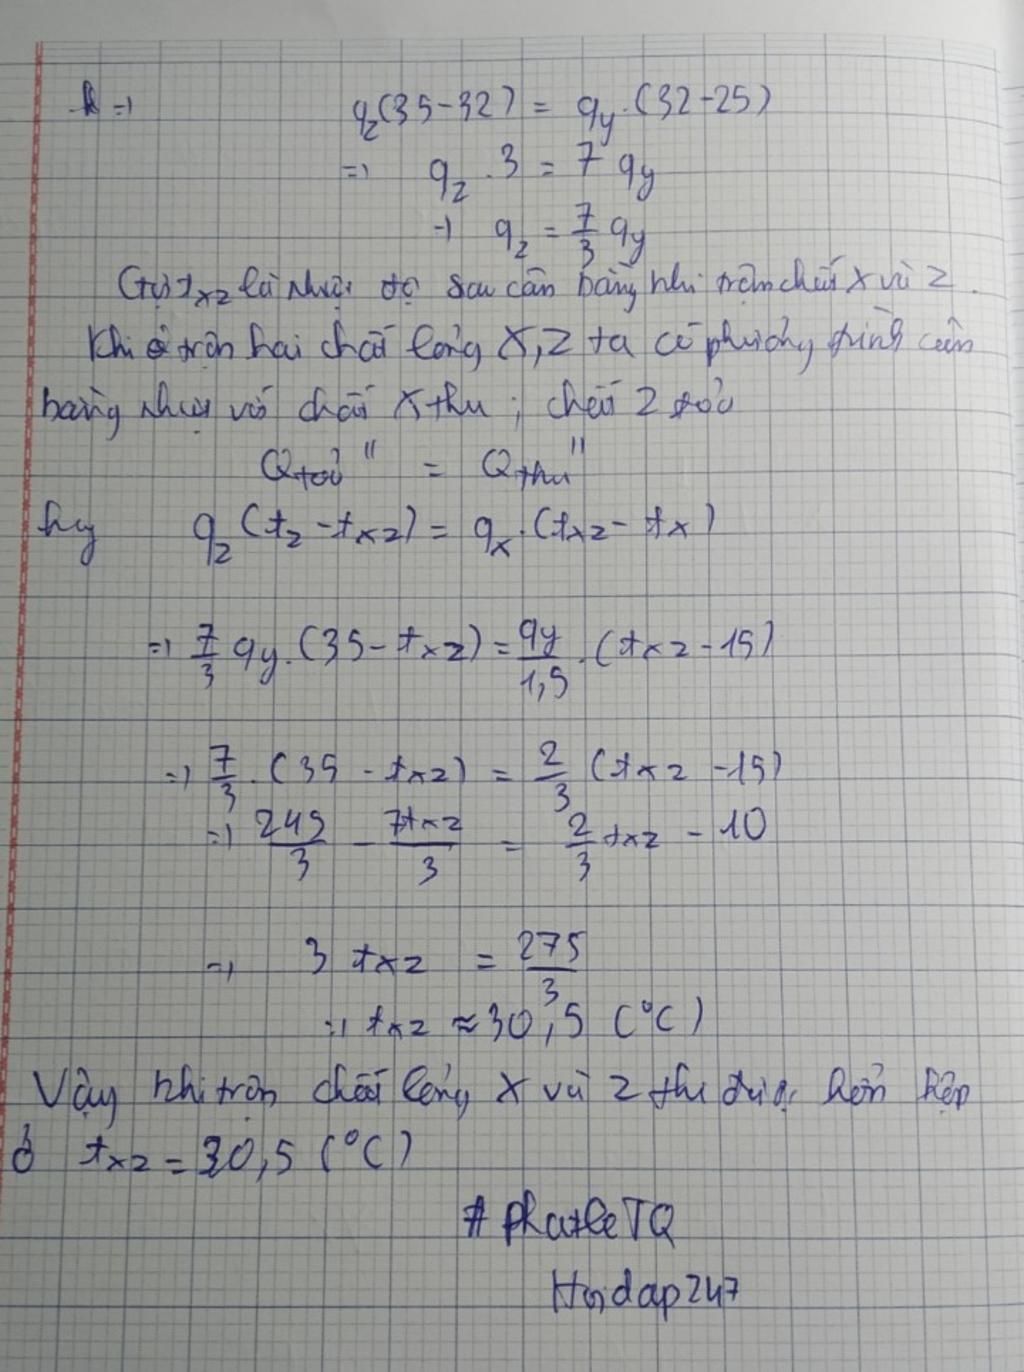 => q₂(35-32) = qy.(32-25)
=> q₂ .3 = 7 qy
=> q₂ = 7/3 qy
Gọi txz là nhiệt độ sau cân bằng khi trộn chất X và Z.
Khi trộn hai chất lỏng X, Z ta có phương trình cân
bằng nhiệt với chất X thu ; chất Z tỏa
Qtoả" = Qthu"
hay q₂ (t₂ - txz) = qx.(txz - tx)
=> 7/3 qy.(35 - txz) = qy/1,5 .(txz - 15)
=> 7/3 .(35 - txz) = 2/3 (txz - 15)
=> 245/3 - 7txz/3 = 2/3 txz - 10
=> 3 txz = 275/3
=> txz ≈ 30,5 (°C)
Vậy khi trộn chất lỏng X và Z thu được hỗn hợp
ở txz = 30,5 (°C)
# phatleTQ
Hoidap247